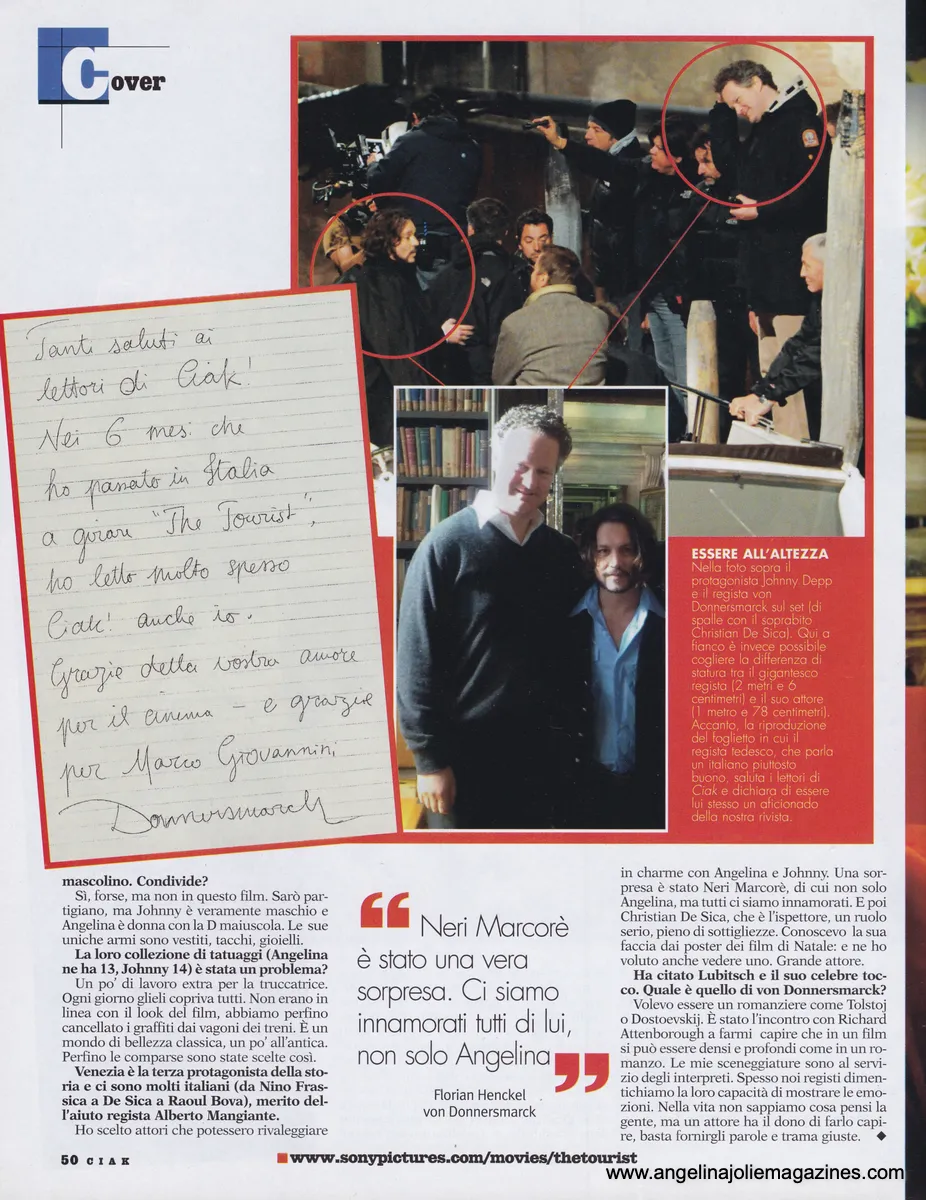 Cover
Tanti saluti ai
lettori di Ciak!
Nei 6 mesi che
ho passato in Italia
a girare "The Tourist",
ho letto molto spesso
Ciak! anche io.
Grazie della vostra amore
per il cinema – e grazie
per Marco Giovannini
Donnersmarck
ESSERE ALL'ALTEZZA
Nella foto sopra il
protagonista Johnny Depp
e il regista von
Donnersmarck sul set (di
spalle con il soprabito
Christian De Sica). Qui a
fianco è invece possibile
cogliere la differenza di
statura tra il gigantesco
regista (2 metri e 6
centimetri) e il suo attore
(1 metro e 78 centimetri).
Accanto, la riproduzione
del foglietto in cui il
regista tedesco, che parla
un italiano piuttosto
buono, saluta i lettori di
Ciak e dichiara di essere
lui stesso un aficionado
della nostra rivista.
mascolino. Condivide?
Sì, forse, ma non in questo film. Sarò par-
tigiano, ma Johnny è veramente maschio e
Angelina è donna con la D maiuscola. Le sue
uniche armi sono vestiti, tacchi, gioielli.
La loro collezione di tatuaggi (Angelina
ne ha 13, Johnny 14) è stata un problema?
Un po' di lavoro extra per la truccatrice.
Ogni giorno glieli copriva tutti. Non erano in
linea con il look del film, abbiamo perfino
cancellato i graffiti dai vagoni dei treni. È un
mondo di bellezza classica, un po' all'antica.
Perfino le comparse sono state scelte così.
Venezia è la terza protagonista della sto-
ria e ci sono molti italiani (da Nino Fras-
sica a De Sica a Raoul Bova), merito del-
l'aiuto regista Alberto Mangiante.
Ho scelto attori che potessero rivaleggiare
“ Neri Marcorè
è stato una vera
sorpresa. Ci siamo
innamorati tutti di lui,
non solo Angelina ”
Florian Henckel
von Donnersmarck
in charme con Angelina e Johnny. Una sor-
presa è stato Neri Marcorè, di cui non solo
Angelina, ma tutti ci siamo innamorati. E poi
Christian De Sica, che è l'ispettore, un ruolo
serio, pieno di sottigliezze. Conoscevo la sua
faccia dai poster dei film di Natale: e ne ho
voluto anche vedere uno. Grande attore.
Ha citato Lubitsch e il suo celebre toc-
co. Quale è quello di von Donnersmarck?
Volevo essere un romanziere come Tolstoj
o Dostoevskij. È stato l'incontro con Richard
Attenborough a farmi capire che in un film
si può essere densi e profondi come in un ro-
manzo. Le mie sceneggiature sono al servi-
zio degli interpreti. Spesso noi registi dimen-
tichiamo la loro capacità di mostrare le emo-
zioni. Nella vita non sappiamo cosa pensi la
gente, ma un attore ha il dono di farlo capi-
re, basta fornirgli parole e trama giuste. ◆
50 CIAK
www.sonypictures.com/movies/thetourist
www.angelinajoliemagazines.com